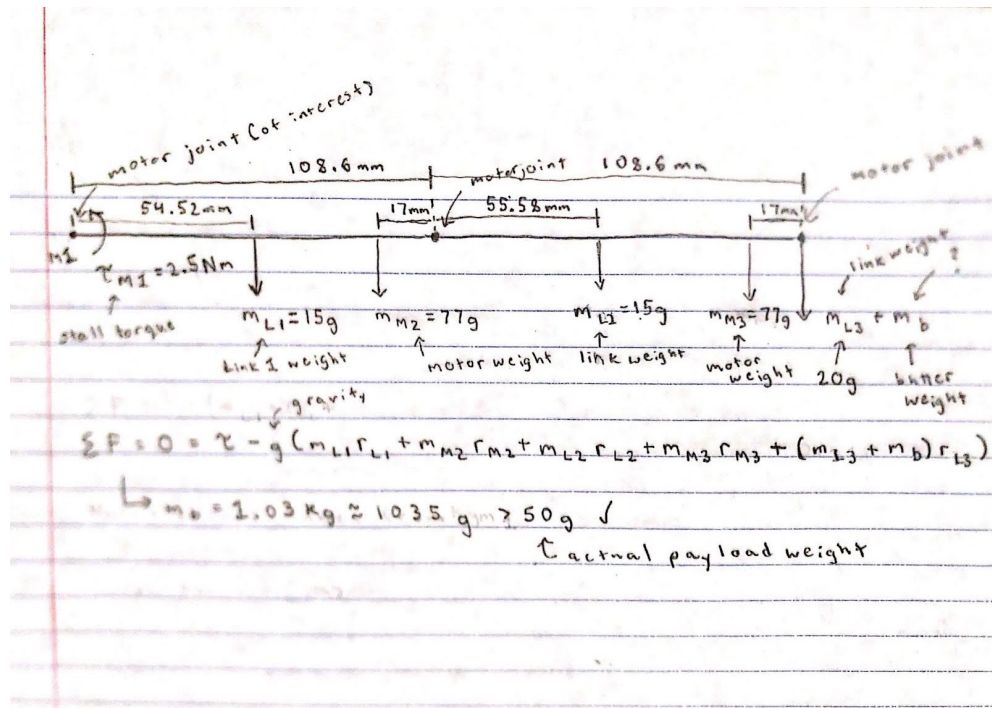 motor joint (of interest)
108.6mm
motor joint
108.6mm
motor joint
54.52mm
17mm
55.58mm
17mm
M1
τM1 = 2.5Nm
stall torque
mL1 = 15g
Link 1 weight
mM2 = 77g
motor weight
mL1 = 15g
link weight
mM3 = 77g
motor weight
link weight
?
mL3 + mb
20g
butter weight
gravity
ΣF = 0 = τ - g (mL1 rL1 + mM2 rM2 + mL2 rL2 + mM3 rM3 + (mL3 + mb) rL3)
↳ mb = 1.03 Kg ≈ 1035 g > 50g ✓
actual payload weight